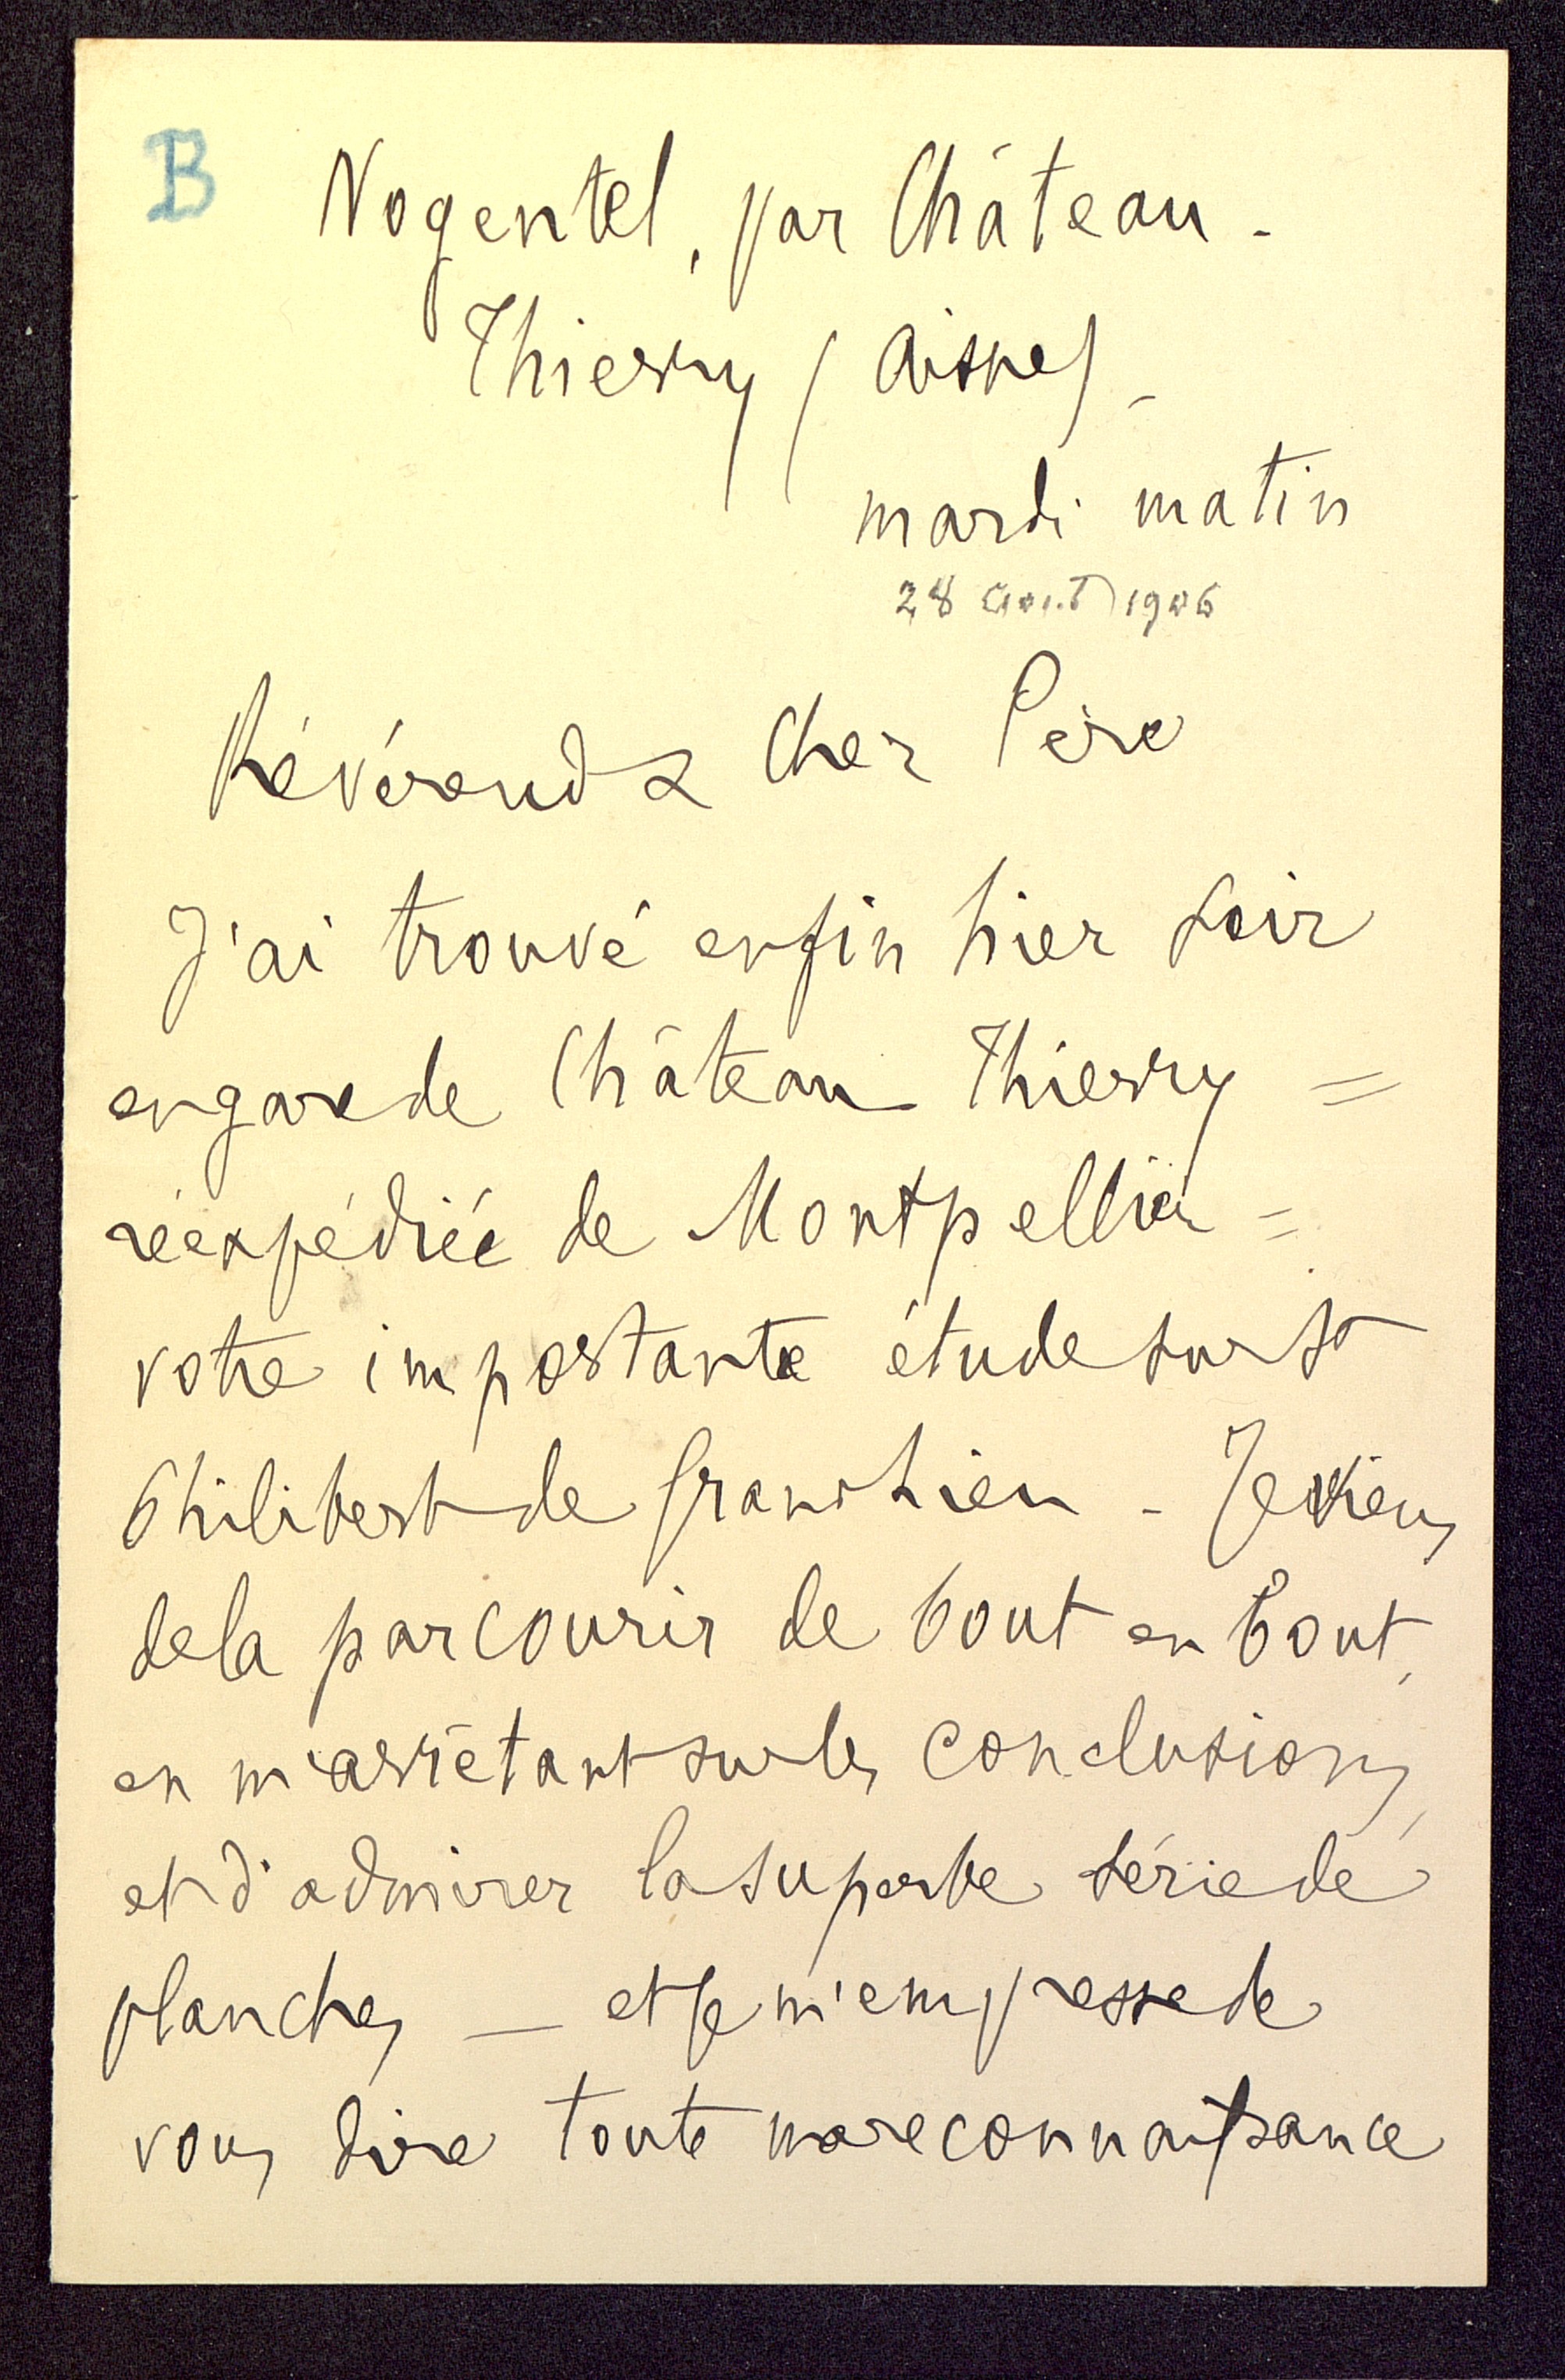 B
Nogentel, par Château-
Thierry (Aisne) -
mardi matin
28 août 1906
Révérend & Cher Père
J'ai trouvé enfin hier soir
en gare de Château Thierry =
réexpédiée de Montpellier =
votre importante étude sur St
Philibert de Grandlieu - Je viens
de la parcourir de bout en bout,
en m'arrêtant sur les conclusions,
et d'admirer la superbe série de
planches — et je m'empresse de
vous dire toute ma reconnaissance